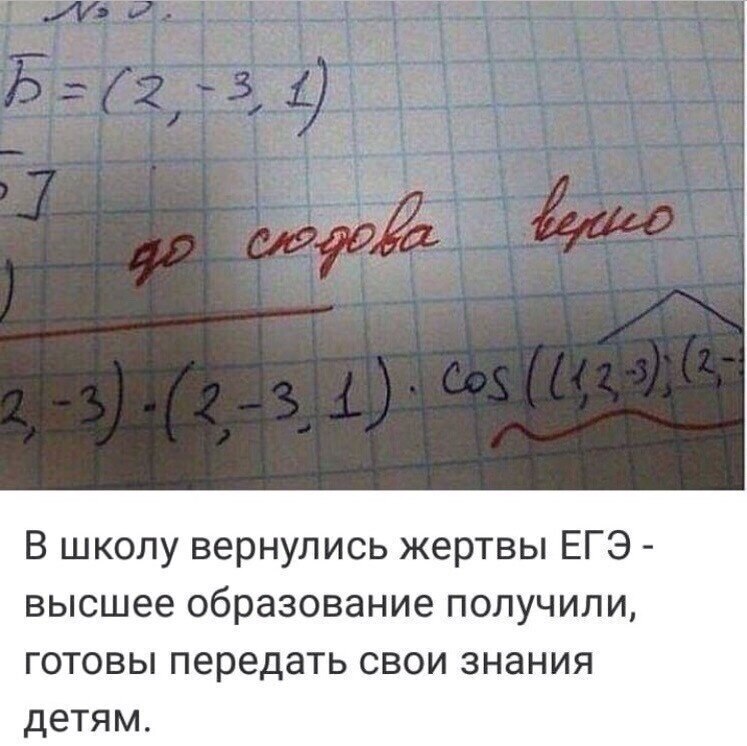 Б = (2, -3, 1)
]
)
до сюдова верно
2, -3) · (2, -3, 1) · cos((1, 2, -3); (2, -
В школу вернулись жертвы ЕГЭ -
высшее образование получили,
готовы передать свои знания
детям.